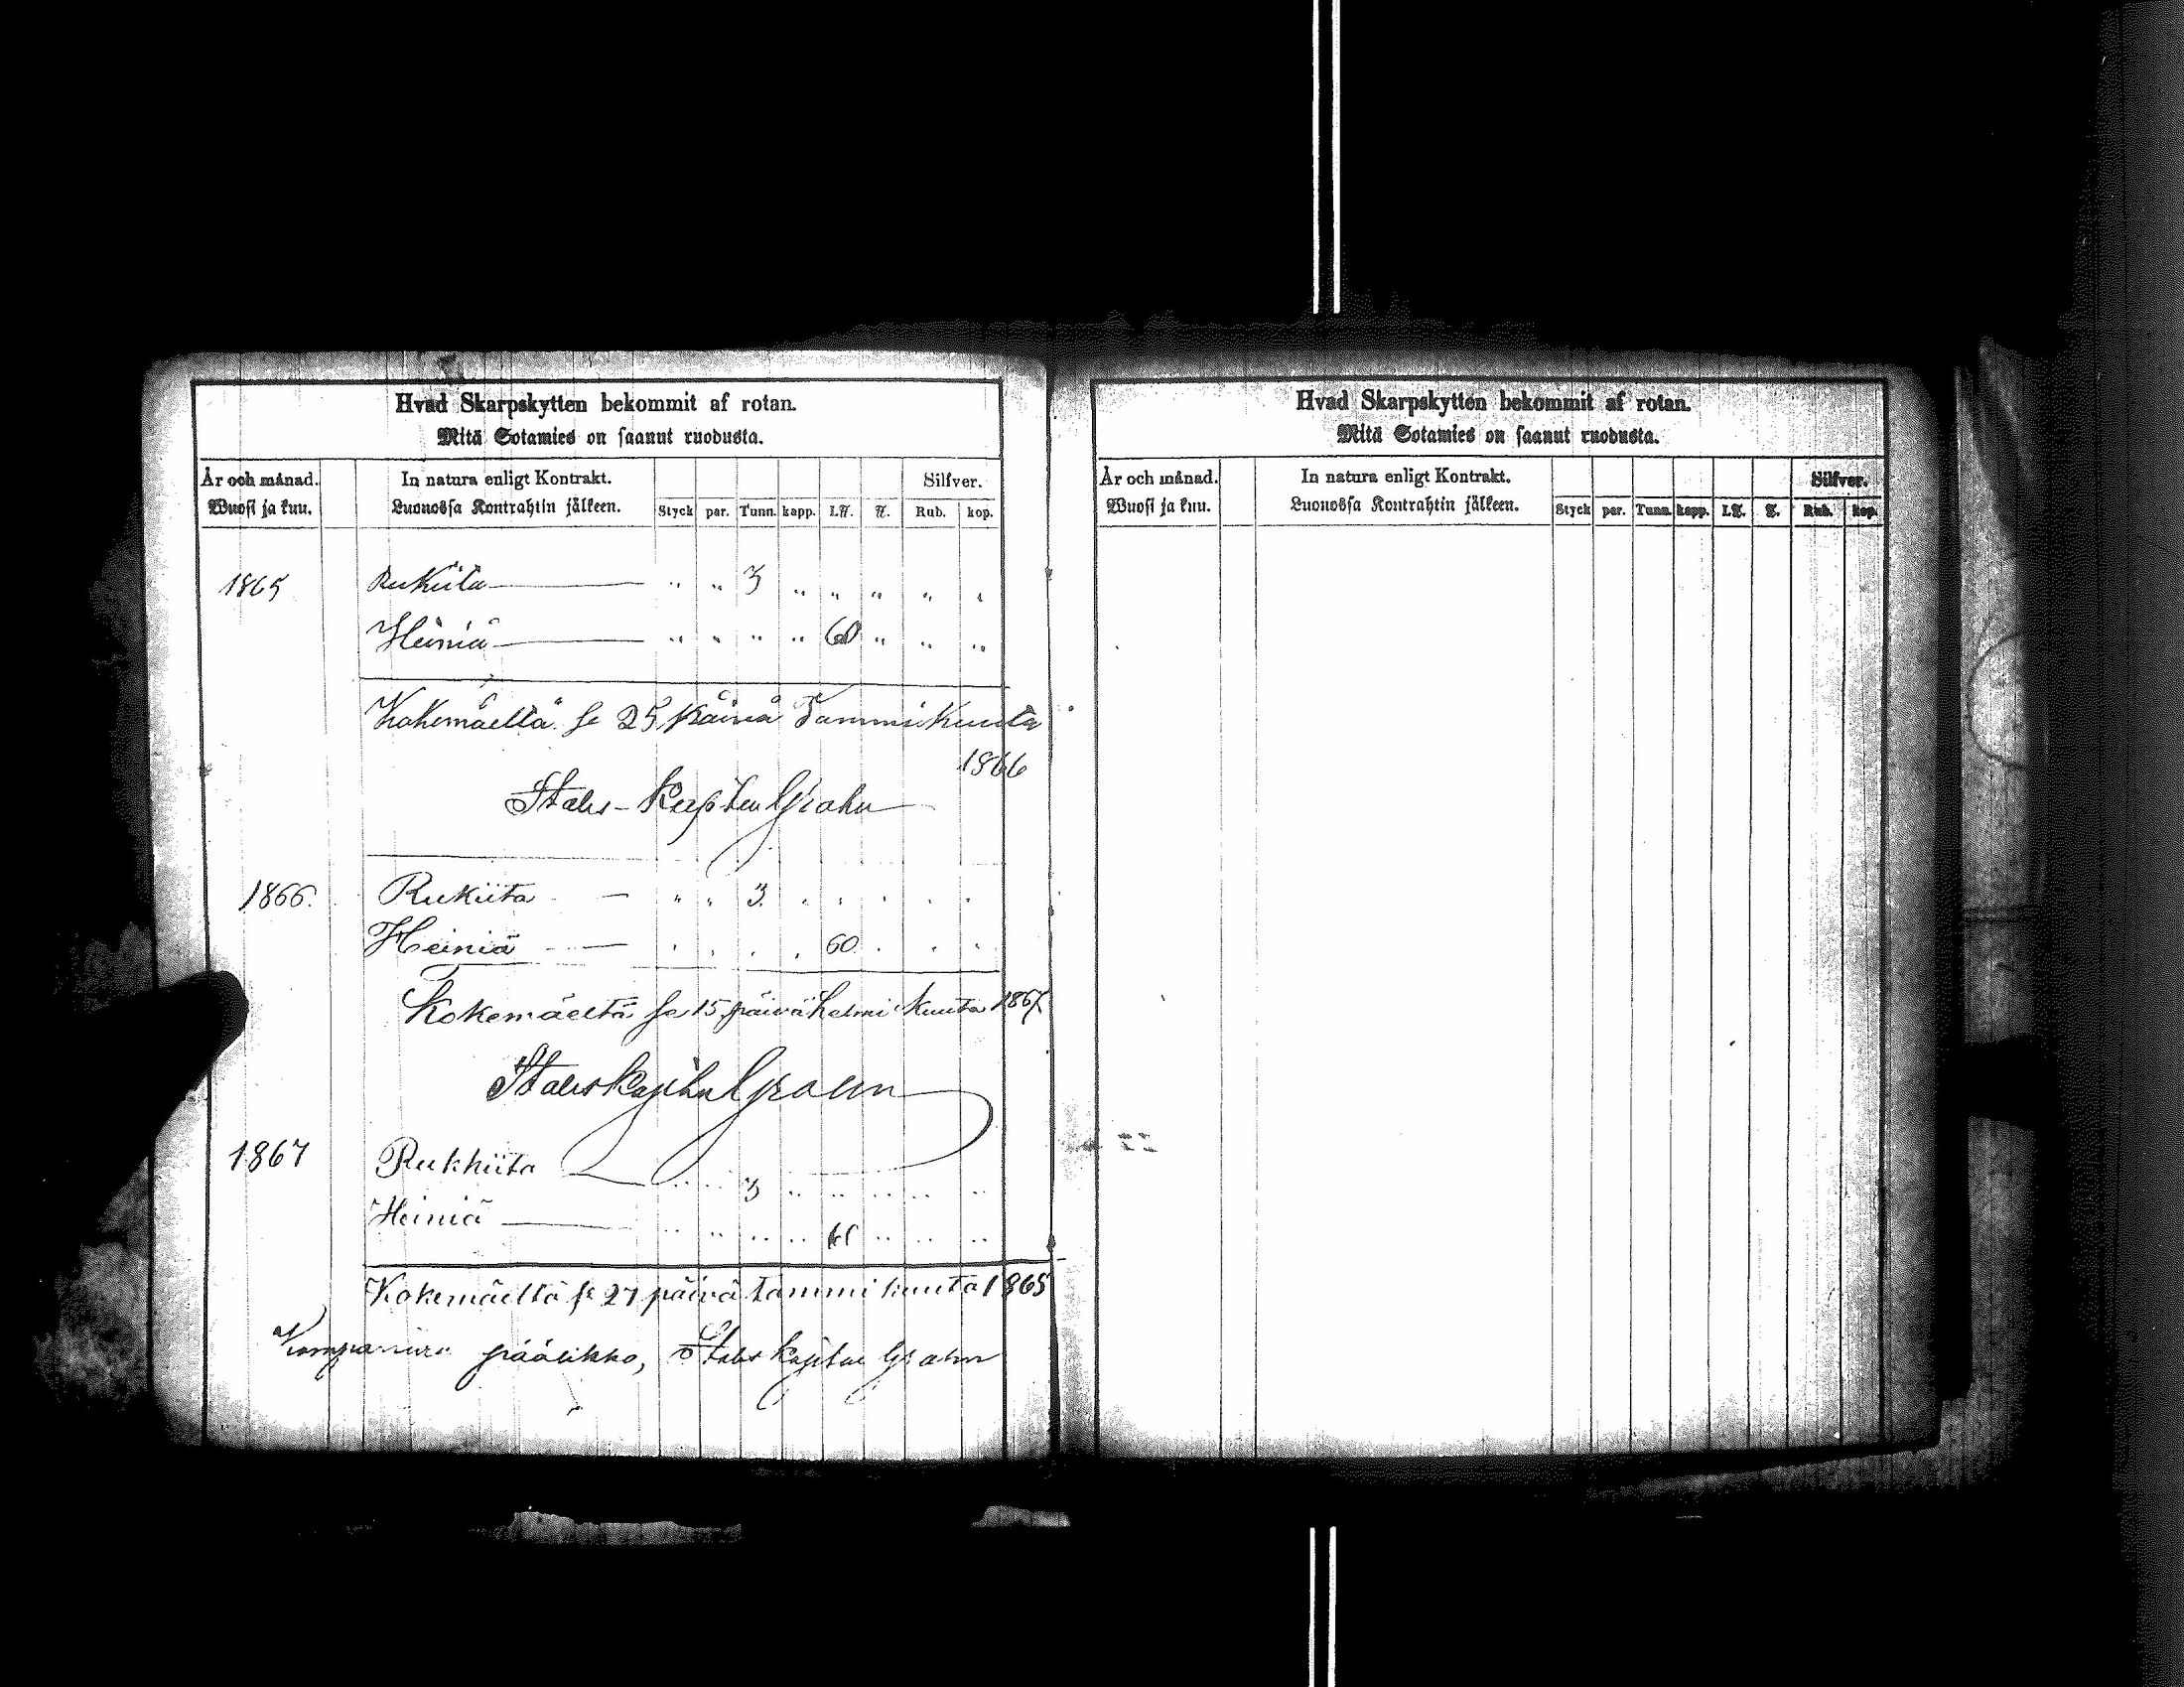 Hvad Skarpskytten bekommit af rotan.
Mitä Sotamies on saanut ruodusta.
År och månad. In natura enligt Kontrakt. Silfver.
Wuosi ja kuu. Luonossa Kontrahtin jälkeen. Styck par. Tunn. kapp. L℔. ℔. Rub. kop.
1865 Rukiita — " " 3 " " " " "
Heiniä — " " " " 60 " " "
Kokemäeltä se 25 päivä Tammi kuuta
1866
Stabs-Kapten Grahn
1866. Rukiita — " " 3. " " " " "
Heiniä — " " " " 60 " " "
Kokemäeltä se 15 päivä helmi kuuta 1867
Stabskapten Grahn
1867 Rukhiita — " " 3 " " " " "
Heiniä — " " " " 60 " " "
Kokemäeltä se 27 päivä tammi kuuta 1868
päälikko, Stabskapten Grahn
Hvad Skarpskytten bekommit af rotan.
Mitä Sotamies on saanut ruodusta.
År och månad. In natura enligt Kontrakt. Silfver.
Wuosi ja kuu. Luonossa Kontrahtin jälkeen. Styck par. Tunn. kapp. L℔. ℔. Rub. kop.